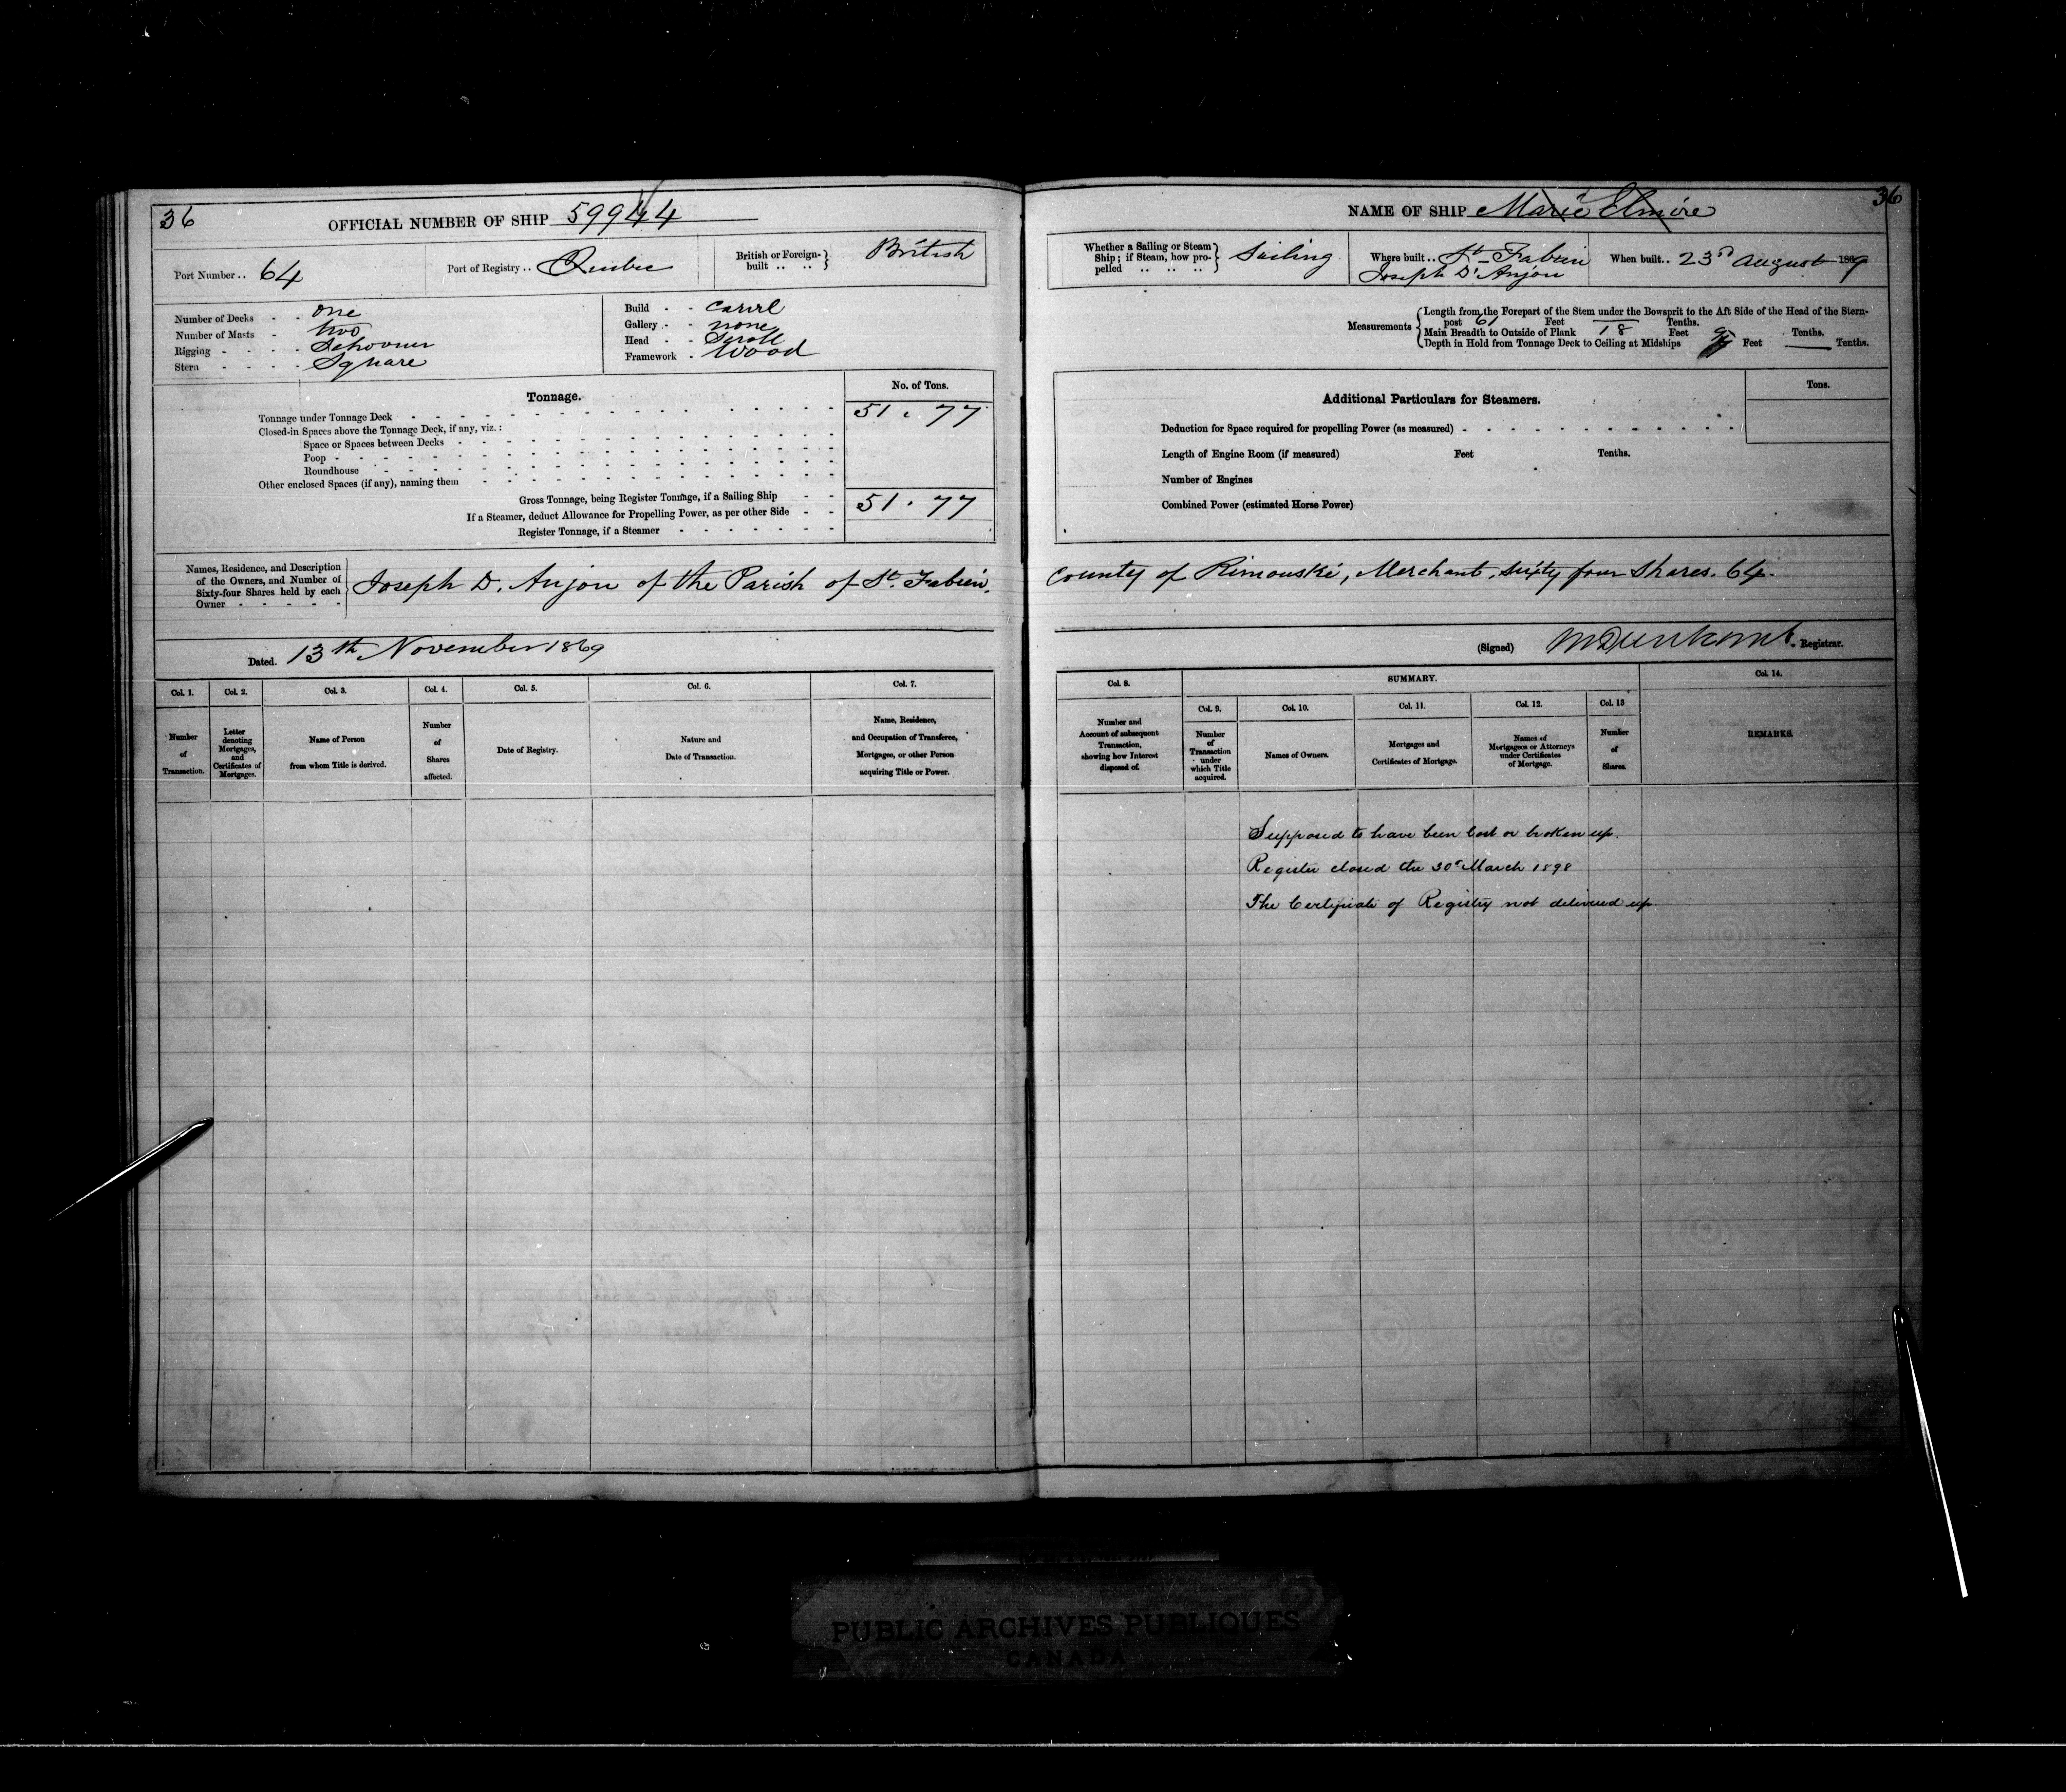 36
OFFICIAL NUMBER OF SHIP 59944
Port Number .. 64
Port of Registry .. Quebec
British or Foreign-built .. .. British
Number of Decks - - one
Number of Masts - two
Rigging - - - - Schooner
Stern - - - - Square
Build - - carvel
Gallery - - none
Head - - Scroll
Framework - Wood
Tonnage.
No. of Tons.
Tonnage under Tonnage Deck 51 . 77
Closed-in Spaces above the Tonnage Deck, if any, viz.:
Space or Spaces between Decks
Poop
Roundhouse
Other enclosed Spaces (if any), naming them
Gross Tonnage, being Register Tonnage, if a Sailing Ship 51 . 77
If a Steamer, deduct Allowance for Propelling Power, as per other Side
Register Tonnage, if a Steamer
Names, Residence, and Description
of the Owners, and Number of
Sixty-four Shares held by each
Owner
Joseph D. Anjou of the Parish of St. Fabien,
Dated. 13th November 1869
Col. 1.
Number
of
Transaction.
Col. 2.
Letter
denoting
Mortgages,
and
Certificates of
Mortgages.
Col. 3.
Name of Person
from whom Title is derived.
Col. 4.
Number
of
Shares
affected.
Col. 5.
Date of Registry.
Col. 6.
Nature and
Date of Transaction.
Col. 7.
Name, Residence,
and Occupation of Transferee,
Mortgagee, or other Person
acquiring Title or Power.
NAME OF SHIP Marie Elmire
36
Whether a Sailing or Steam
Ship; if Steam, how pro-
pelled .. .. .. Sailing
Where built .. St Fabien
Joseph D'Anjou
When built .. 23d August 1869
Measurements
Length from the Forepart of the Stem under the Bowsprit to the Aft Side of the Head of the Stern-
post 61 Feet — Tenths.
Main Breadth to Outside of Plank 18 Feet Tenths.
Depth in Hold from Tonnage Deck to Ceiling at Midships Feet — Tenths.
Additional Particulars for Steamers.
Tons.
Deduction for Space required for propelling Power (as measured)
Length of Engine Room (if measured) Feet Tenths.
Number of Engines
Combined Power (estimated Horse Power)
County of Rimouski, Merchant, sixty four shares. 64.
(Signed) Registrar.
Col. 8.
Number and
Account of subsequent
Transaction,
showing how Interest
disposed of.
SUMMARY.
Col. 9.
Number
of
Transaction
under
which Title
acquired.
Col. 10.
Names of Owners.
Col. 11.
Mortgages and
Certificates of Mortgage.
Col. 12.
Names of
Mortgagees or Attorneys
under Certificates
of Mortgage.
Col. 13
Number
of
Shares.
Col. 14.
REMARKS.
Supposed to have been lost or broken up.
Register closed the 30th March 1898
The Certificate of Registry not delivered up.
PUBLIC ARCHIVES PUBLIQUES
CANADA